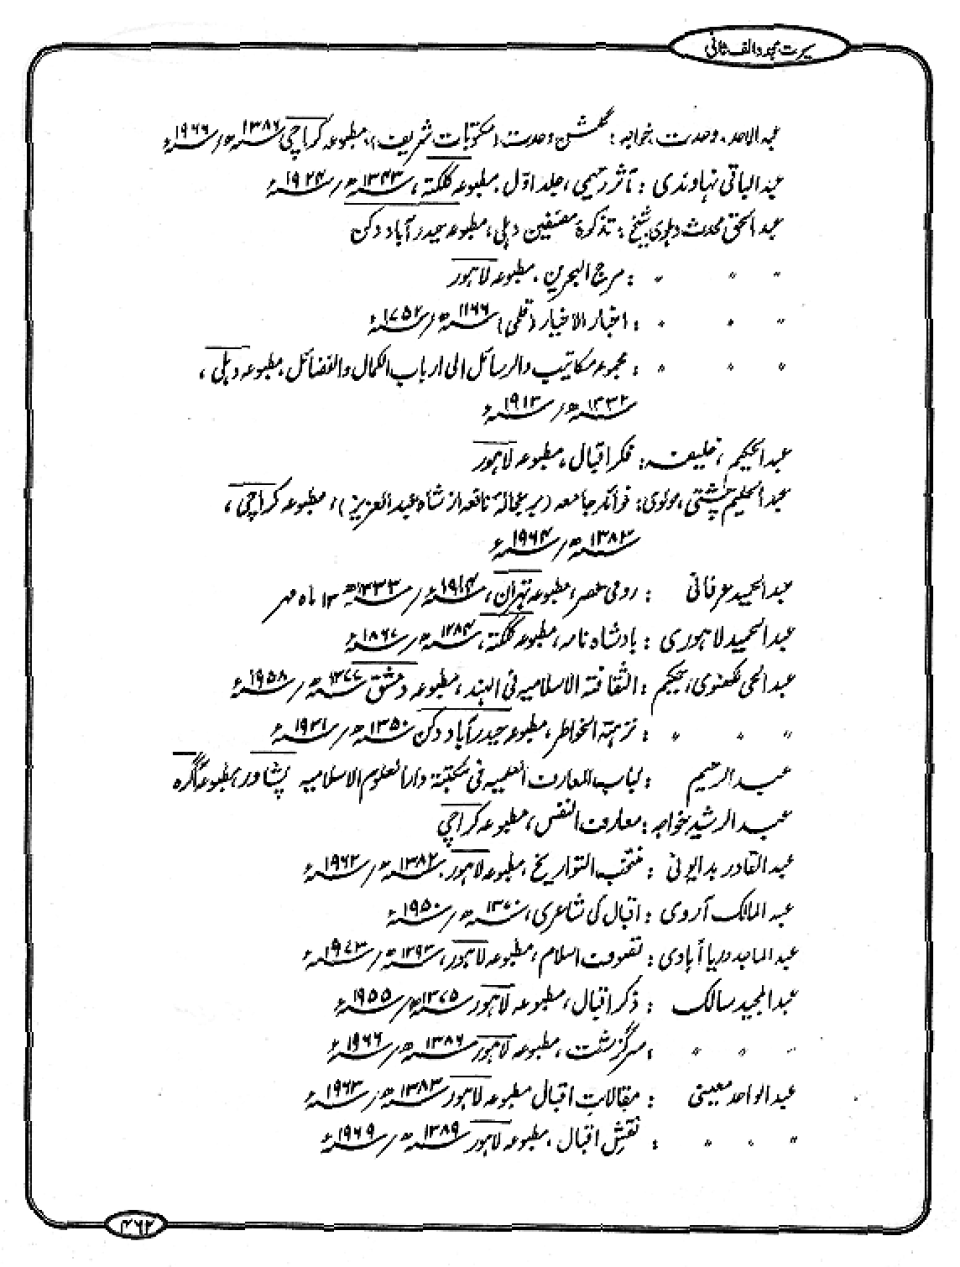 سیرت مجدد الف ثانی
عبدالاحد، وحدت، خواجہ : گلشن وحدت (مکتوبات شریف)، مطبوعہ کراچی ۱۳۸۶ھ/۱۹۶۶ء
عبدالباقی نہاوندی : مآثر رحیمی، جلد اوّل، مطبوعہ کلکتہ، ۱۳۴۳ھ/۱۹۲۴ء
عبدالحق محدث دہلوی شیخ : تذکرۂ مصنفین دہلی، مطبوعہ حیدرآباد دکن
〃 〃 〃 : مرج البحرین، مطبوعہ لاہور
〃 〃 〃 : اخبار الاخیار (قلمی) ۱۱۶۶ھ/۱۷۵۲ء
〃 〃 〃 : مجموعہ مکاتیب والرسائل الی ارباب الکمال والفضائل، مطبوعہ دہلی،
۱۳۳۲ھ/۱۹۱۳ء
عبدالحکیم، خلیفہ : فکر اقبال، مطبوعہ لاہور
عبدالحلیم چشتی، مولوی : فوائد جامعہ (بر عجالۂ نافعہ از شاہ عبدالعزیز)، مطبوعہ کراچی،
۱۳۸۳ھ/۱۹۶۴ء
عبدالحمید عرفانی : رومی عصر، مطبوعہ تہران، ۱۹۱۴ء/۱۳۳۳ھ ۱۳ ماہ مہر
عبدالحمید لاہوری : بادشاہ نامہ، مطبوعہ کلکتہ، ۱۲۸۴ھ/۱۸۶۷ء
عبدالحی لکھنوی، حکیم : الثقافتہ الاسلامیہ فی الہند، مطبوعہ دمشق ۱۳۷۷ھ/۱۹۵۸ء
〃 〃 〃 : نزہتہ الخواطر، مطبوعہ حیدرآباد دکن ۱۳۵۰ھ/۱۹۳۱ء
عبدالرحیم : لباب المعارف العلمیہ فی مکتبتہ دارالعلوم الاسلامیہ پشاور، مطبوعہ آگرہ
عبدالرشید خواجہ : معارف النفس، مطبوعہ کراچی
عبدالقادر بدایونی : منتخب التواریخ، مطبوعہ لاہور ۱۳۸۲ھ/۱۹۶۲ء
عبدالمالک آروی : اقبال کی شاعری، ۱۳۷۰ھ/۱۹۵۰ء
عبدالماجد دریا آبادی : تصوف اسلام، مطبوعہ لاہور، ۱۳۹۳ھ/۱۹۷۳ء
عبدالمجید سالک : ذکر اقبال، مطبوعہ لاہور ۱۳۷۵ھ/۱۹۵۵ء
〃 〃 〃 ، سرگزشت، مطبوعہ لاہور ۱۳۸۶ھ/۱۹۶۶ء
عبدالواحد معینی : مقالاتِ اقبال مطبوعہ لاہور ۱۳۸۳ھ/۱۹۶۳ء
〃 〃 〃 : نقشِ اقبال، مطبوعہ لاہور ۱۳۸۹ھ/۱۹۶۹ء
۴۶۲